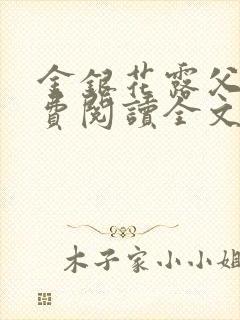 金銀花露父
費閱讀全文
木子家小小姐